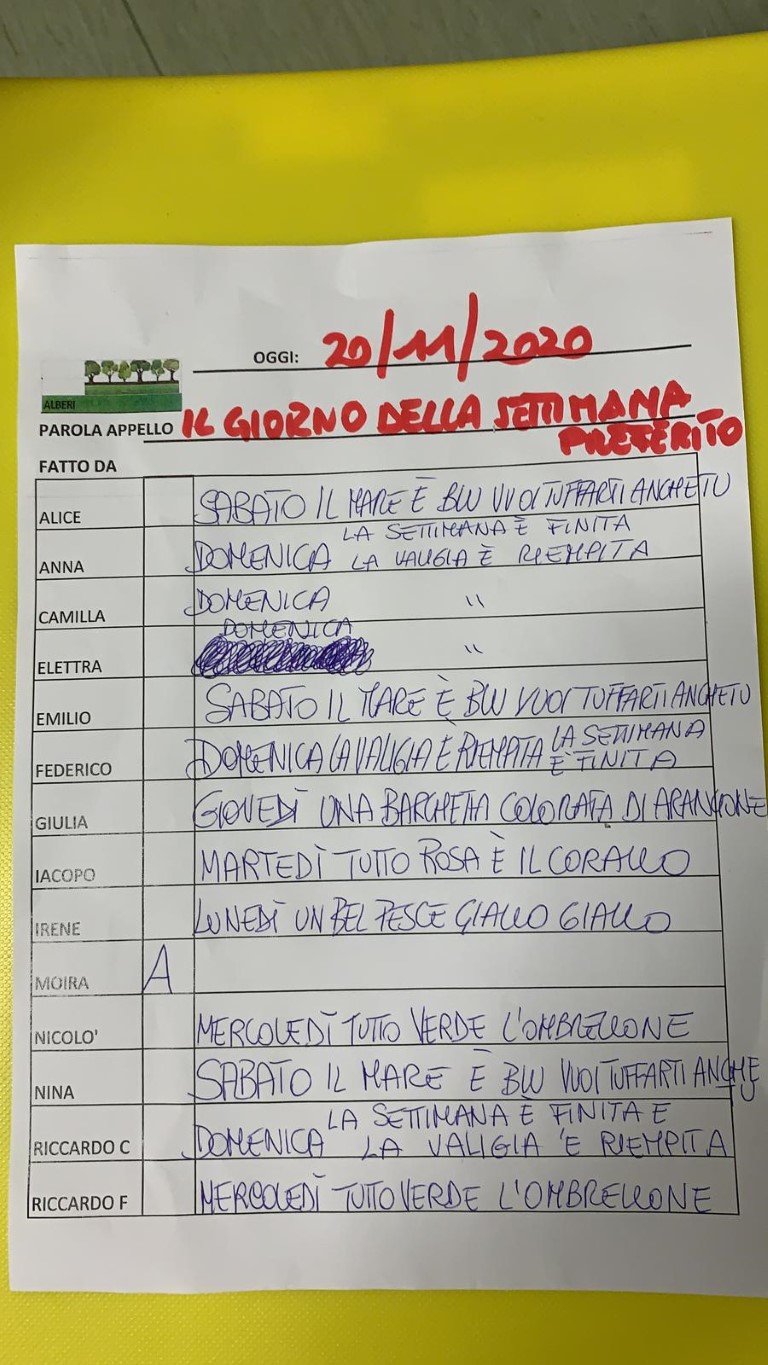 OGGI: 20/11/2020
ALBERI
PAROLA APPELLO IL GIORNO DELLA SETTIMANA
PREFERITO
FATTO DA
ALICE SABATO IL MARE È BLU VUOI TUFFARTI ANCHE TU
LA SETTIMANA È FINITA
ANNA DOMENICA LA VALIGIA È RIEMPITA
CAMILLA DOMENICA "
DOMENICA
ELETTRA "
EMILIO SABATO IL MARE È BLU VUOI TUFFARTI ANCHE TU
FEDERICO DOMENICA LA VALIGIA È RIEMPITA LA SETTIMANA
È FINITA
GIULIA GIOVEDÌ UNA BARCHETTA COLORATA DI ARANCIONE
IACOPO MARTEDÌ TUTTO ROSA È IL CORALLO
IRENE LUNEDÌ UN BEL PESCE GIALLO GIALLO
MOIRA A
NICOLO' MERCOLEDÌ TUTTO VERDE L'OMBRELLONE
NINA SABATO IL MARE È BLU VUOI TUFFARTI ANCHE
TU
LA SETTIMANA È FINITA E
RICCARDO C DOMENICA LA VALIGIA È RIEMPITA
RICCARDO F MERCOLEDÌ TUTTO VERDE L'OMBRELLONE